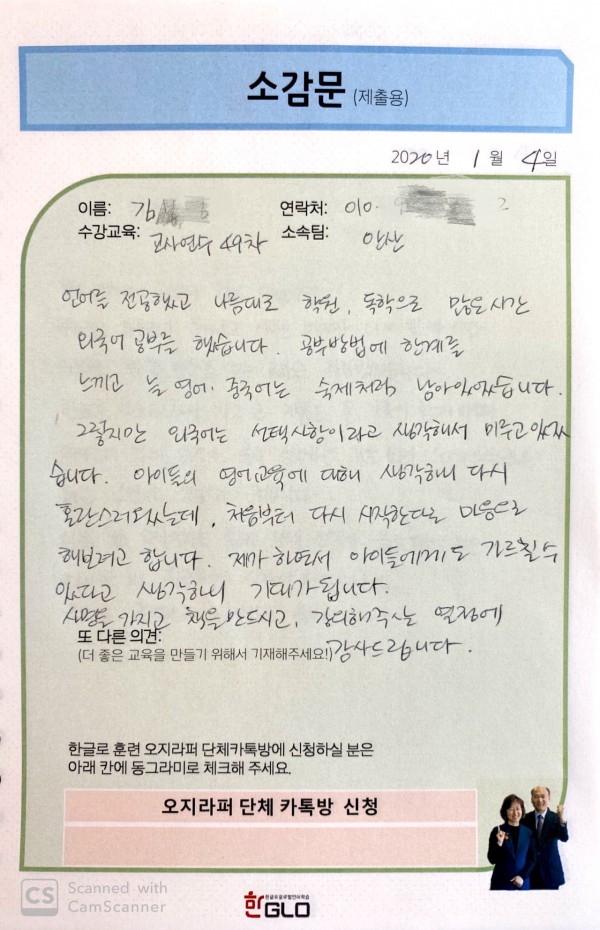 소감문 (제출용)
2020년 1월 4일
이름: 김
연락처: 010.
수강교육: 교사연수 49차
소속팀: 안산
언어를 전공했고 나름대로 학원, 독학으로 많은시간
외국어 공부를 했습니다. 공부방법에 한계를
느끼고 늘 영어·중국어는 숙제처럼 남아있었습니다.
그렇지만 외국어는 선택사항이라고 생각해서 미루고있었
습니다. 아이들의 영어교육에 대해 생각하니 다시
혼란스러웠는데, 처음부터 다시 시작한다는 마음으로
해보려고 합니다. 제가 하면서 아이들에게도 가르칠 수
있다고 생각하니 기대가 됩니다.
사명을 가지고 책을 만드시고, 강의해주시는 열정에
감사드립니다.
또 다른 의견:
(더 좋은 교육을 만들기 위해서 기재해주세요!)
한글로 훈련 오지라퍼 단체카톡방에 신청하실 분은
아래 칸에 동그라미로 체크해 주세요.
오지라퍼 단체 카톡방 신청
CS Scanned with
CamScanner
한글유음글로벌언어학습
한GLO